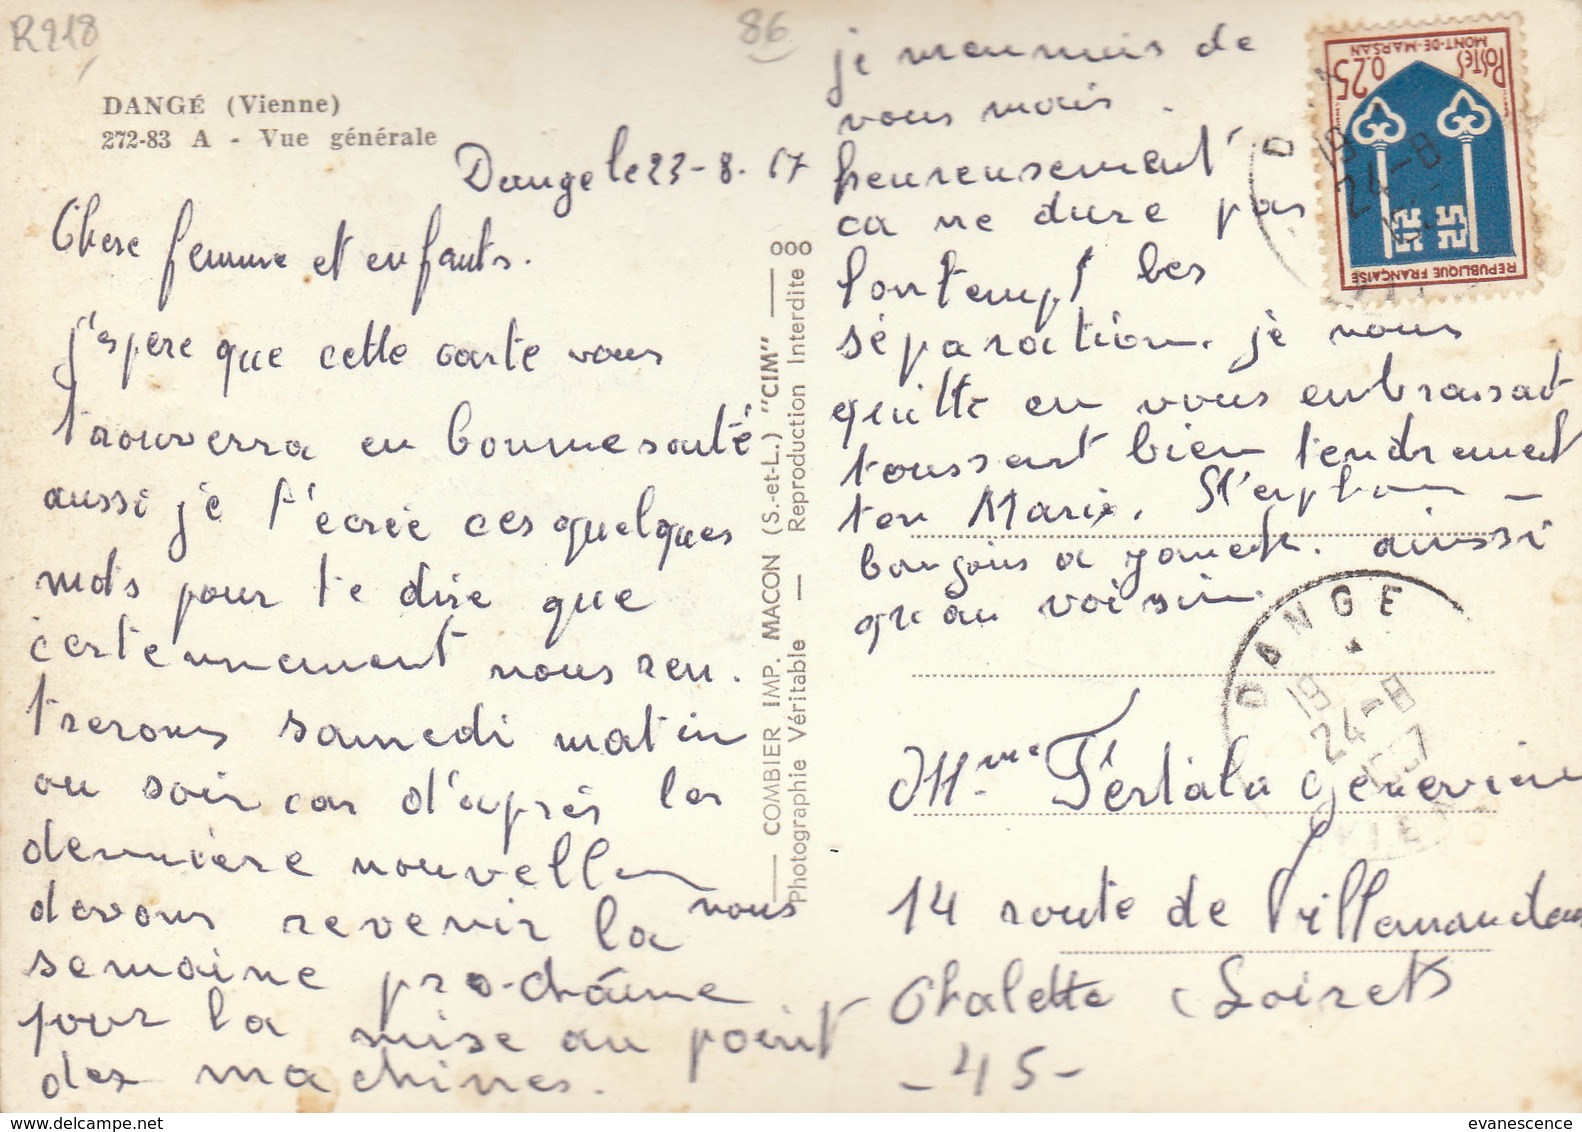 R218
86
DANGÉ (Vienne)
272-83 A - Vue générale
Dange le 23-8. 67
Chere femme et enfants.
j'espere que cette carte vous
trouverra en bonne santé
aussi je t'écrie ces quelques
mots pour te dire que
certennement nous ren.
trerons samedi matin
ou soir car d'aprés les
dernière nouvelles
nous
devons revenir la
semaine pro-cháine
pour la mise au point
des machines.
COMBIER IMP. MACON (S.-et-L.) "CIM"
Photographie Véritable — Reproduction Interdite
je m'ennuis de
vous mais
heureusement
ca ne dure pas
lontemps les
séparation. je vous
quitte en vous enbrassat
toussent bien tendrement
ton Mari. Stephan
bonjours a ainssi
qu'au voisin.
POSTES 0,25
MONT-DE-MARSAN
REPUBLIQUE FRANÇAISE
D
19
24-8
DANGE
19
24-8
1967
VIEN
Mme Fertala Genevieve
14 route de Villemandeur
Chalette (Loiret)
-45-
evanescence